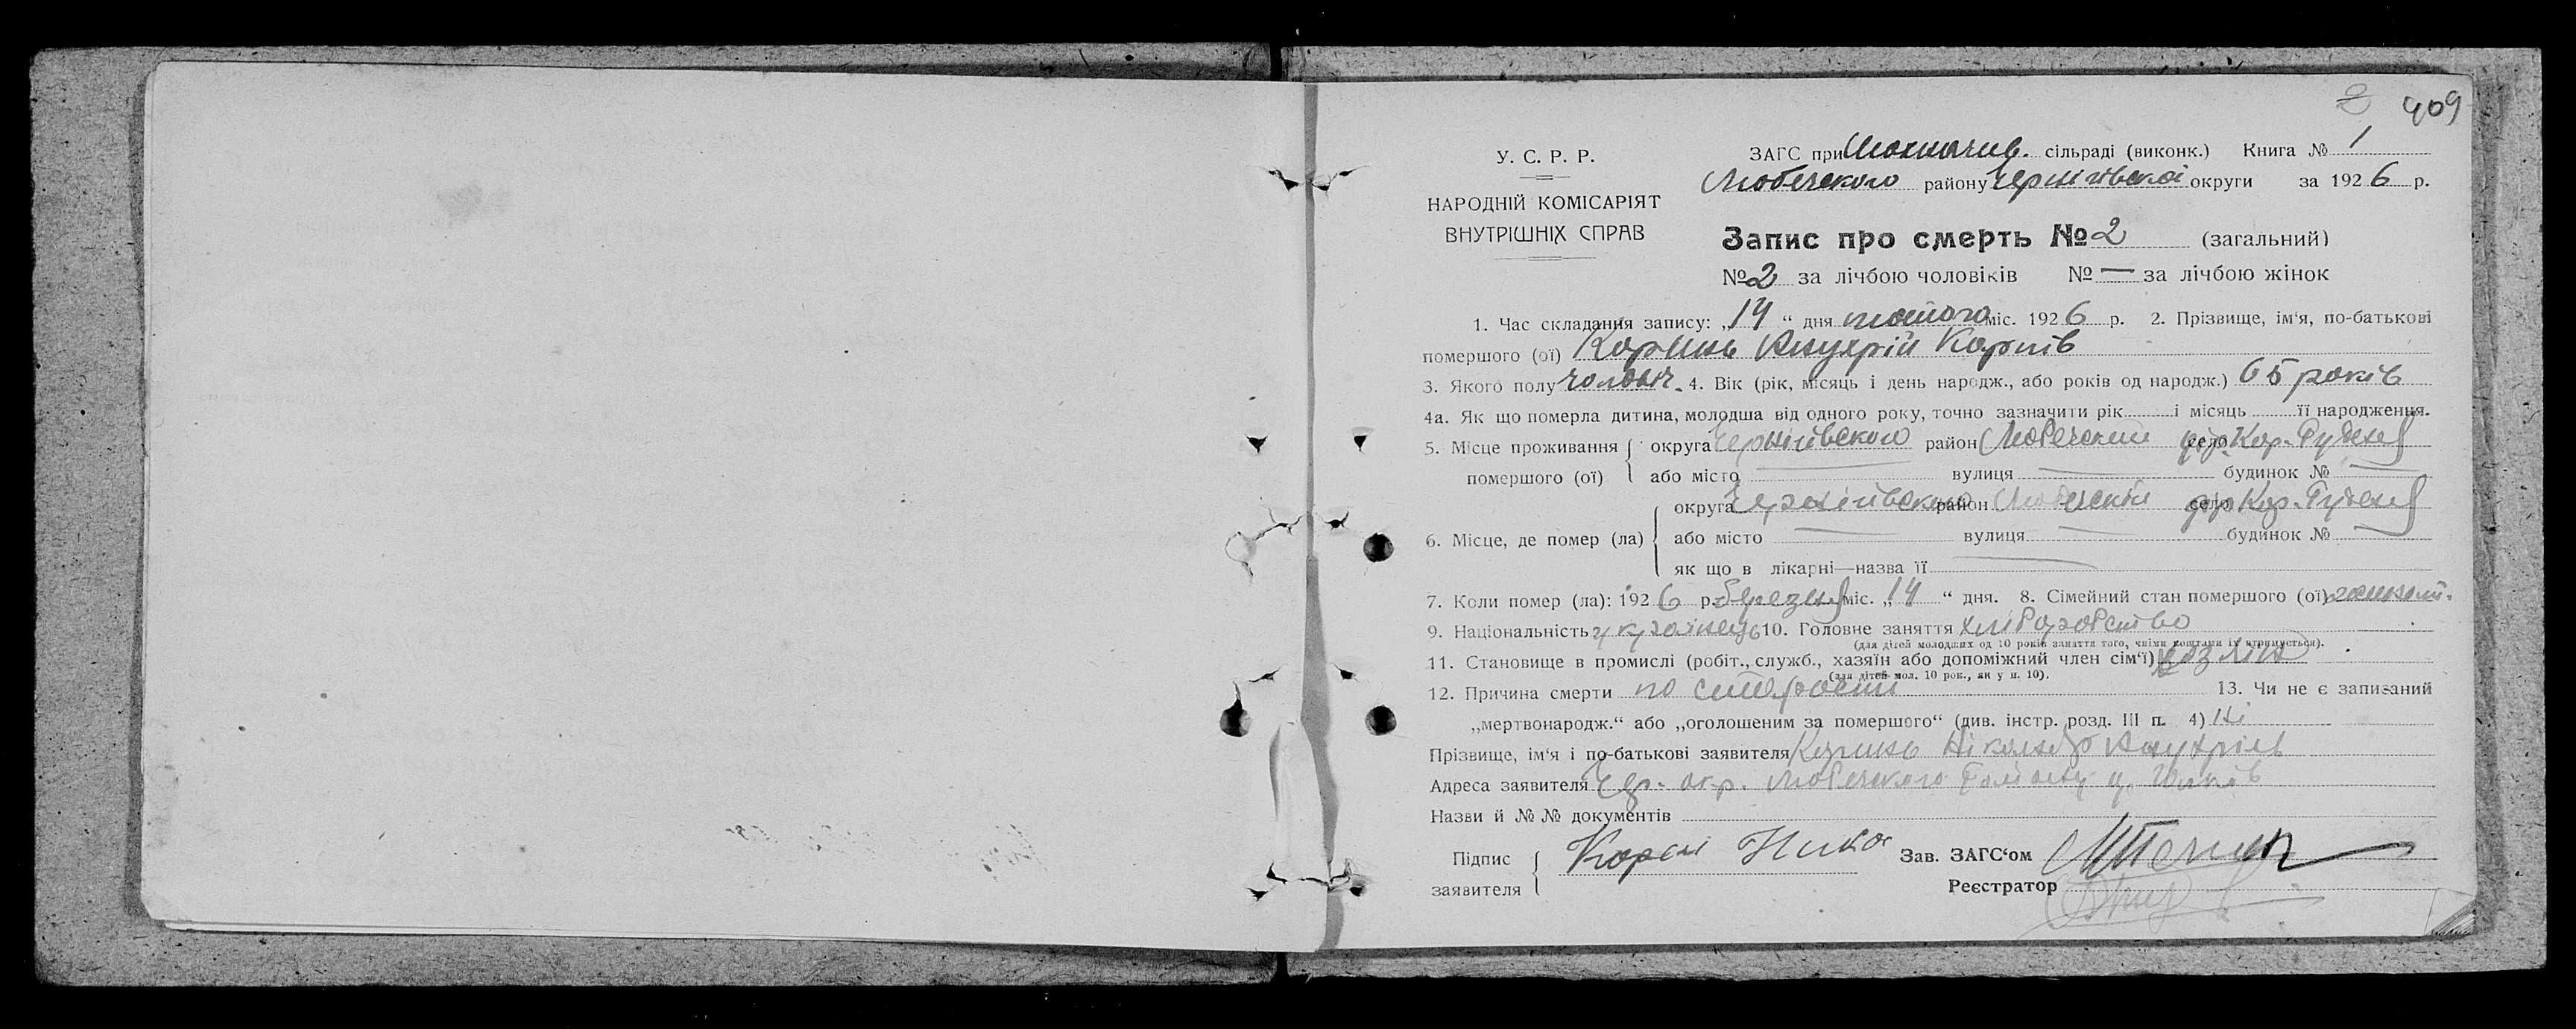 409
У. С. Р. Р.
НАРОДНІЙ КОМІСАРІЯТ
ВНУТРІШНІХ СПРАВ
ЗАГС при сільраді (виконк.) Книга № 1
Любечского району Чернігівскоі округи за 1926 р.
Запис про смерть № 2 (загальний)
№ 2 за лічбою чоловіків № — за лічбою жінок
1. Час складання запису: „14“ дня лютого міс. 1926 р. 2. Прізвище, ім‘я, по-батькові
помершого (ої) Корінь Карпів
3. Якого полу чоловіч. 4. Вік (рік, місяць і день народж., або років од народж.) 65 років
4а. Як що померла дитина, молодша від одного року, точно зазначити рік і місяць її народження.
5. Місце проживання округа Чернігівского район Любечский село Кор. Рудня
помершого (ої) або місто — вулиця — будинок № —
округа Чернігівского район Любечский село Кор. Рудня
6. Місце, де помер (ла) або місто — вулиця — будинок № —
як що в лікарні—назва її —
7. Коли помер (ла): 1926 р. березня міс. „14“ дня. 8. Сімейний стан помершого (ої) жонат.
9. Національність українець 10. Головне заняття хліборобство
(для дітей молодших од 10 років заняття того, чиїми коштами їх утримується).
11. Становище в промислі (робіт., служб., хазяїн або допоміжний член сім‘ї) хозяін
(для дітей мол. 10 рок., як у п. 10).
12. Причина смерти по старости 13. Чи не є записаний
„мертвонародж.“ або „оголошеним за помершого“ (див. інстр. розд. III п. 4) Ні
Прізвище, ім‘я і по-батькові заявителя Корінь
Адреса заявителя Чер. окр. Любечского району
Назви й №№ документів
Підпис
заявителя
Зав. ЗАГС‘ом
Реєстратор